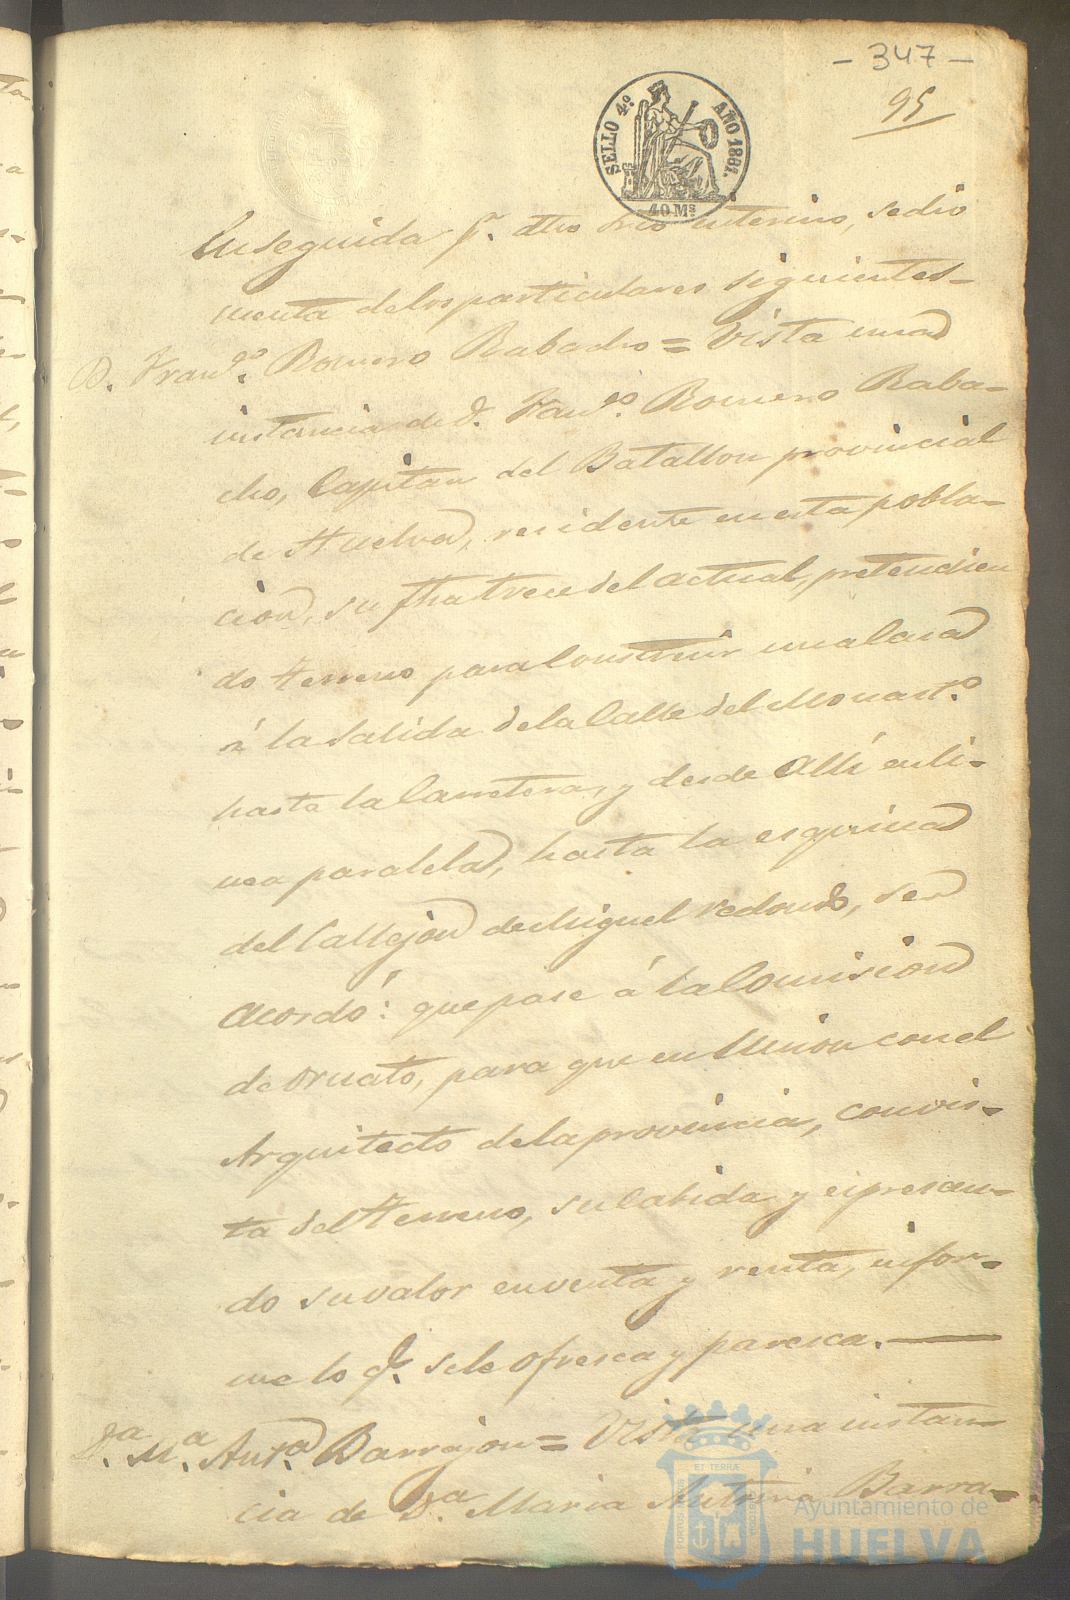 - 347 -
95
SELLO 4.º AÑO 1861.
40 Ms
Enseguida p.r dho Srio interino, se dio
cuenta de los particulares siguientes-
D. Fran.co Romero Rabacho = Vista una
instancia de D. Fran.co Romero Raba-
cho, Capitan del Batallon provincial
de Huelva, residente en esta pobla-
cion, su fha trece del actual, pretendien
do terreno para construir una Casa
á la Salida de la Calle del Monast.º
hasta la Carretera, y desde Allí en li-
nea paralela, hasta la esquina
del Callejon de Miguel redondo, se
Acordó: que pase á la Comision
de ornato, para que en Union con el
Arquitecto de la provincia, con vis-
ta del terreno, su cabida y espresan-
do su valor en venta y renta, infor-
me lo q.e se le ofresca y paresca.
D.a M.a Ant.a Barrajon = Vista una instan-
cia de D.a Maria Antonia Barra-
Ayuntamiento de
HUELVA